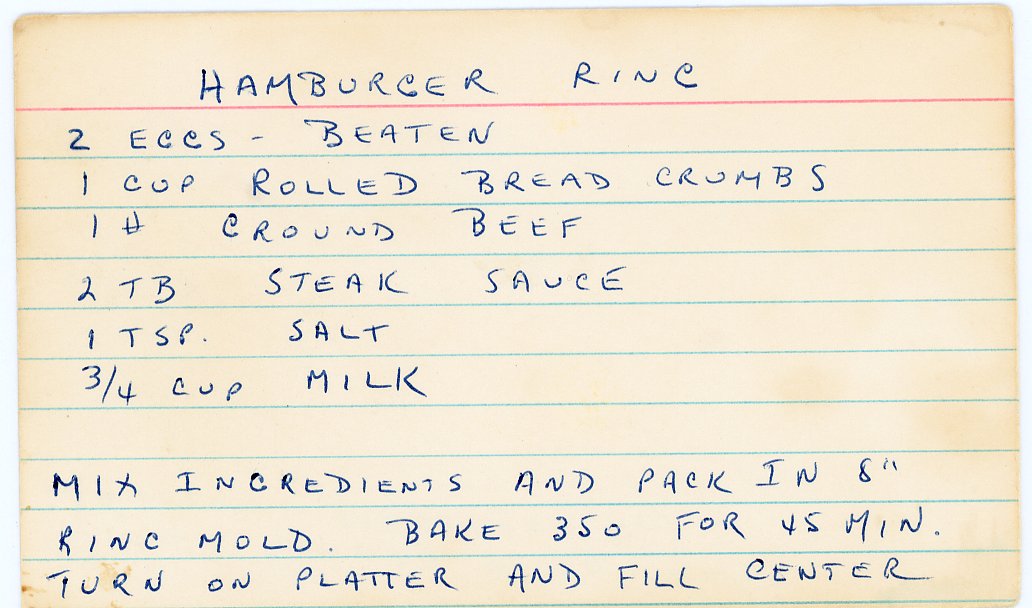 HAMBURGER RING
2 EGGS - BEATEN
1 CUP ROLLED BREAD CRUMBS
1 # GROUND BEEF
2 TB STEAK SAUCE
1 TSP. SALT
3/4 CUP MILK
MIX INGREDIENTS AND PACK IN 8"
RING MOLD. BAKE 350 FOR 45 MIN.
TURN ON PLATTER AND FILL CENTER